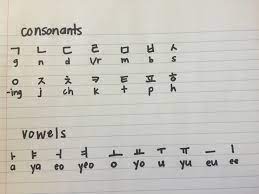 consonants
ㄱ ㄴ ㄷ ㄹ ㅁ ㅂ ㅅ
g n d l/r m b s
ㅇ ㅈ ㅊ ㅋ ㅌ ㅍ ㅎ
-ing j ch k t p h
vowels
ㅏ ㅑ ㅓ ㅕ ㅗ ㅛ ㅜ ㅠ ㅡ ㅣ
a ya eo yeo o yo u yu eu ee